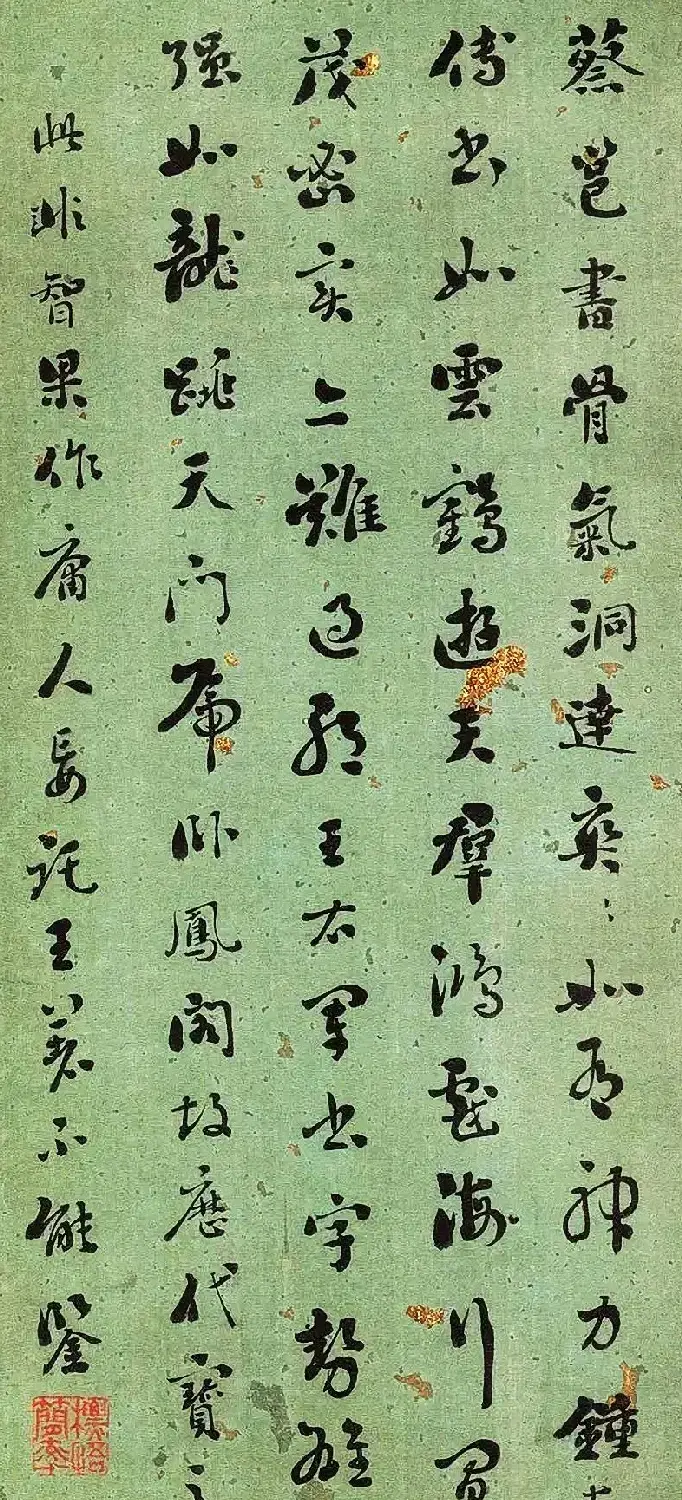 蔡邕書骨氣洞達爽〻如有神力鍾
傅書如雲鶴遊天群鴻戲海行間
茂密實亦難過耶王右軍書字勢雄
强如龍跳天門虎卧鳳閣故歷代寶之
此非智果作庸人妄託王著不能鑒